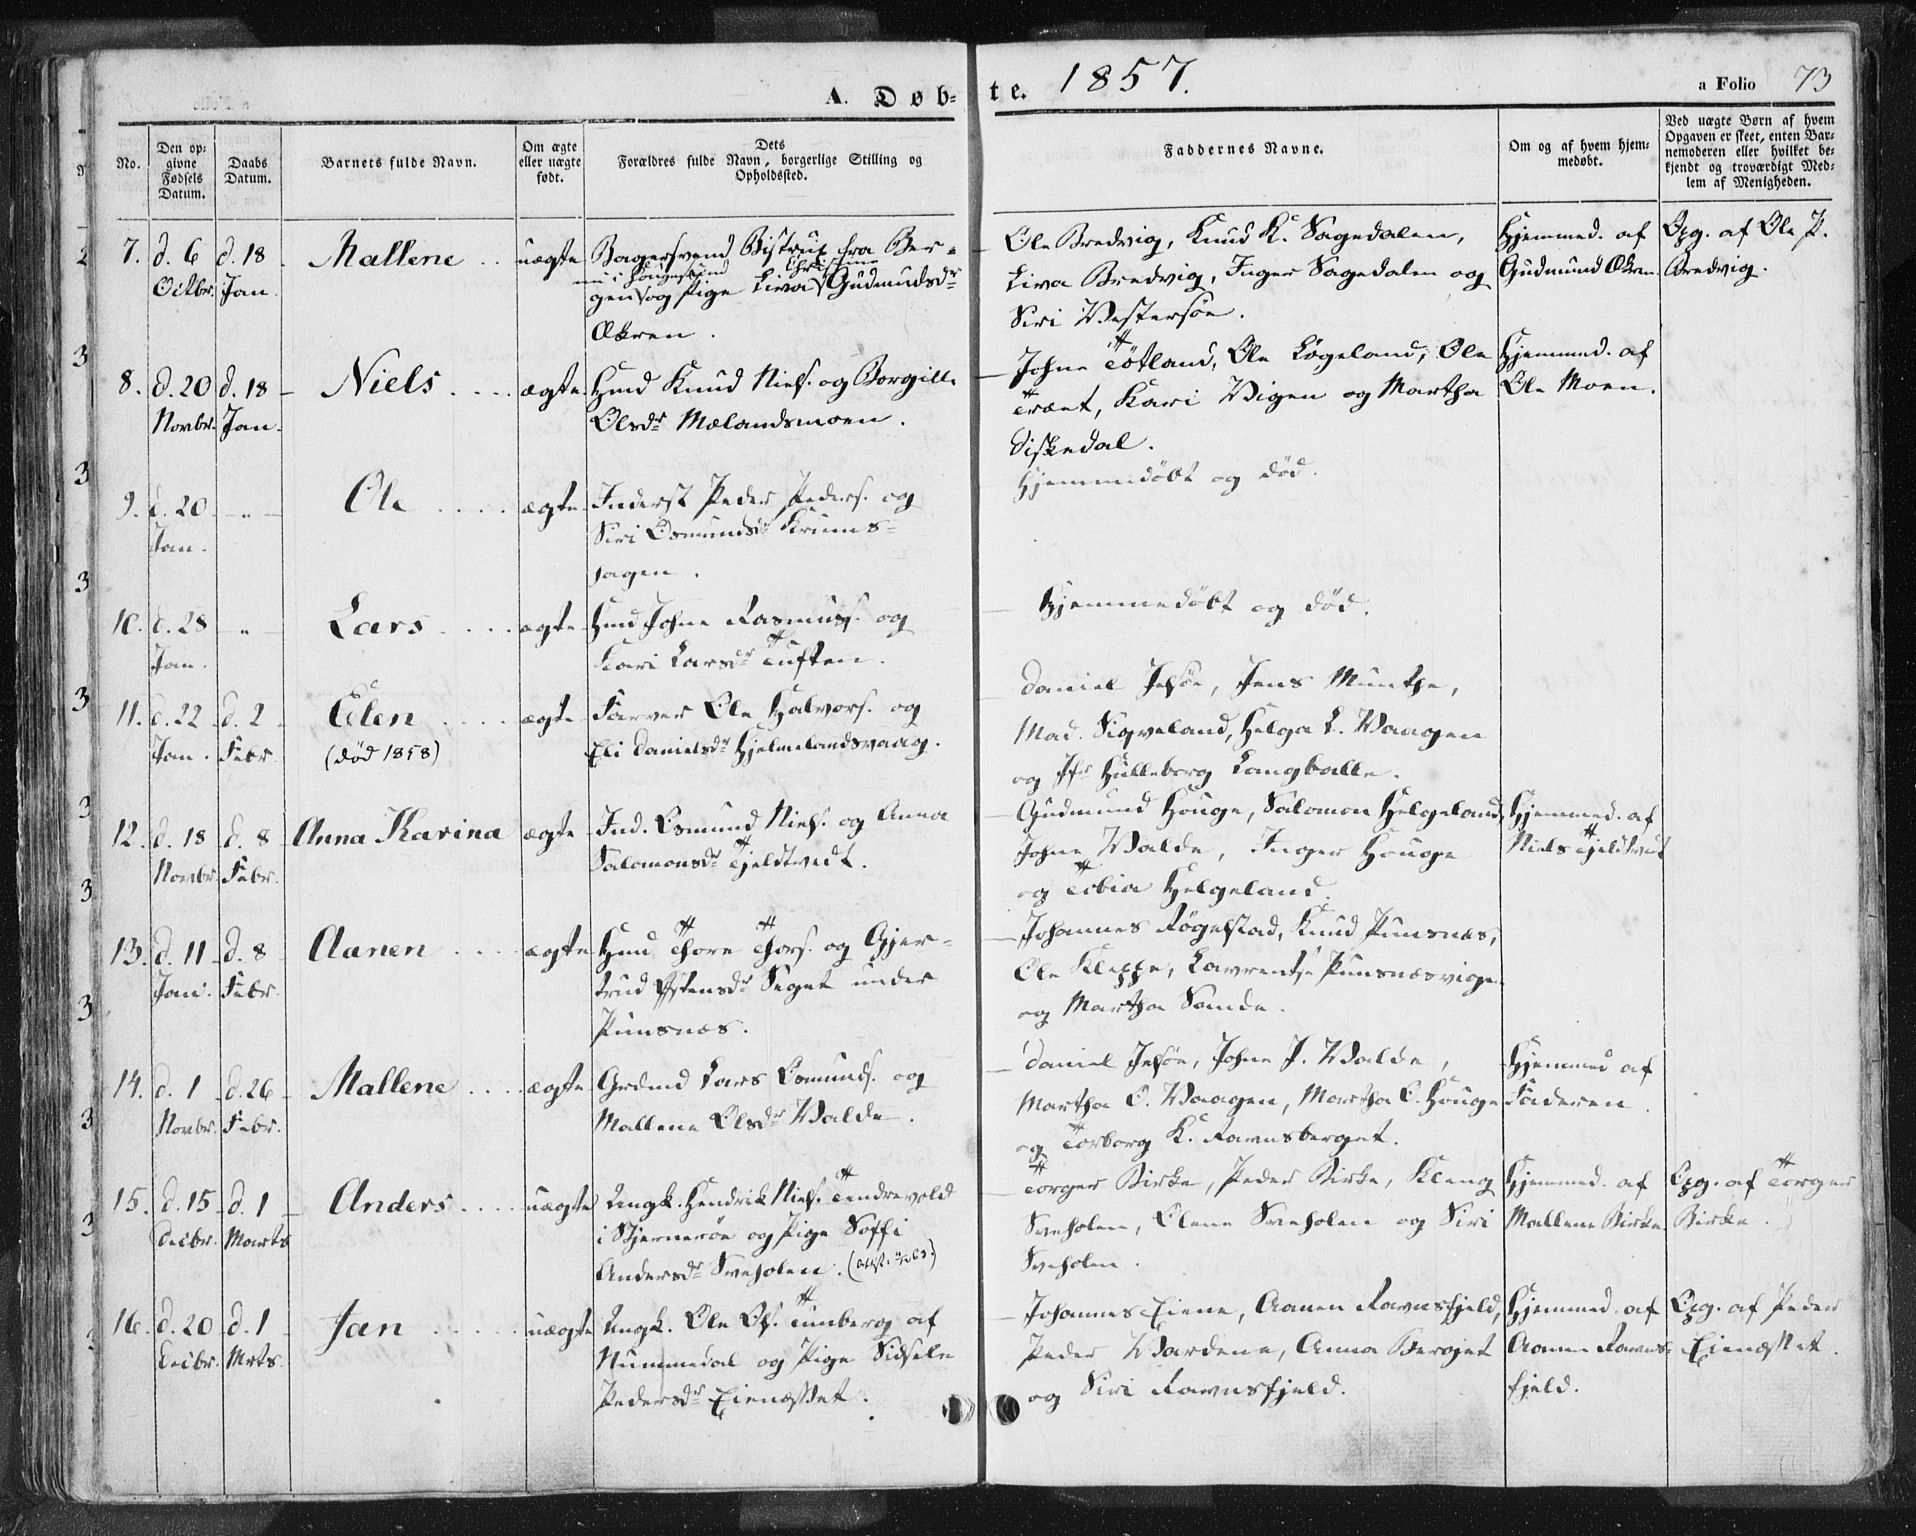 A. Døb-
te. 1857.
a Folio 73
No.
Den opgivne Fødsels Datum.
Daabs Datum.
Barnets fulde Navn.
Om ægte eller uægte født.
Dets Forældres fulde Navn, borgerlige Stilling og Opholdssted.
Faddernes Navne.
Om og af hvem hjemmedøbt.
Ved uægte Børn af hvem Opgaven er skeet, enten Barnemoderen eller hvilket bekjendt og troværdigt Medlem af Menigheden.
7. d. 6 Octbr. d. 18 Jan. Mallene uægte
Bagersvend Bistrup fra Ber-
nu i Hougesund Christine
gen og Pige Liva Gudmundsdr
Økren.
Ole Bredvig, Knud K. Sagedalen,
Liva Bredvig, Inger Sagedalen og
Siri Vestersøe.
Hjemmed. af
Gudmund Økren.
Opg. af Ole P.
Bredvig.
8. d. 20 Novbr. d. 18 Jan. Niels ægte
Hmd Knud Niels. og Borgille
Olsdr Mælandsmoen.
Johne Tötland, Ole Løgeland, Ole
Træet, Kari Vigen og Martha
Diskedal.
Hjemmed. af
Ole Moen.
9. d. 20 Jan. - " - Ole ægte
Inderst Peder Peders. og
Siri Osmundsdr Krums-
hagen.
Hjemmedöbt og död.
10. d. 28 Jan. - " - Lars ægte
Hmd Johne Rasmus. og
Kari Larsdr Tuften.
Hjemmedöbt og död.
11. d. 22 Jan. d. 2 Febr. Elen ægte
(död 1858)
Farver Ole Halvors. og
Eli Danielsdr Hjelmelandsvaag.
Daniel Jelsöe, Jens Munthe,
Mad. Sigveland, Helga L. Vaagen
og Jfr Hilleborg Langballe.
12. d. 18 Novbr. d. 8 Febr. Anna Karina ægte
Ind. Osmund Niels. og Anna
Salomonsdr Tjeldtvedt.
Gudmund Houge, Salomon Helgeland,
Johne Valde, Inger Houge
og Tobia Helgeland.
Hjemmed. af
Niels Tjeldtvedt
13. d. 11 Jan. d. 8 Febr. Aanen ægte
Hmd Thore Thors. og Gjer-
trud Östensdr Teget under
Punsnæs.
Johannes Rögelstad, Knud Punsnæs,
Ole Kleppe, Lavrentse Punsnæsvigen
og Martha Sande.
14. d. 1 Novbr. d. 26 Febr. Mallene ægte
Grdmd Lars Osmunds. og
Mallene Olsdr Valde.
Daniel Jelsöe, Johne J. Valde,
Martha O. Vaagen, Martha O. Houge
og Torborg K. Ravnsberget.
Hjemmed af
Faderen.
15. d. 15 Decbr. d. 1 Marts Anders uægte
Ungk. Hendrik Niels. Tendrevold
i Stjernerøe og Pige Soffi
Andersdr Sveholen.
Torger Birke, Peder Birke, Kleng
Sveholen, Olene Sveholen og Siri
Sveholen.
Hjemmed. af
Mallene Birke
Opg. af Torger
Birke.
16. d. 20 Decbr. d. 1 Mrts. Jan uægte
Ungk. Ole Ols. Timberg af
Nummedal og Pige Sidsele
Pedersdr Eienæsset.
Johannes Eiene, Aanen Ravnsfjeld,
Peder Vardene, Anna Berget
og Siri Ravnsfjeld.
Hjemmed. af
Aanen Ravns-
fjeld.
Opg. af Peder
Eienæsset.